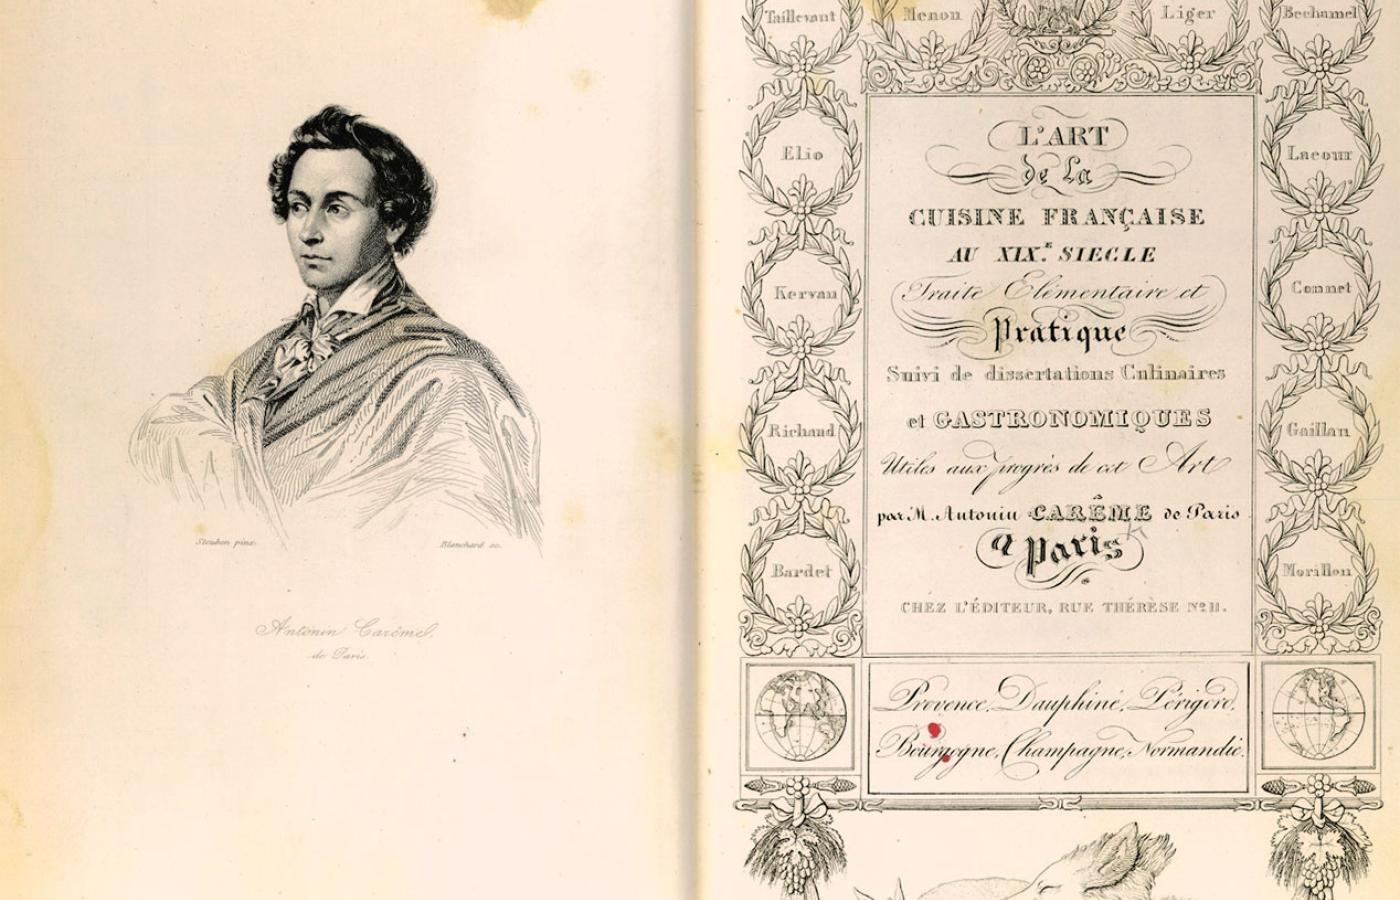 Steuben pinx.
Blanchard sc.
Antonin Carême.
de Paris.
Taillevant
Menon
Liger
Bechamel
Elio
Lacour
Kervan
Connet
Richaud
Gaillan
Bardet
Morillon
L'ART
de La
CUISINE FRANÇAISE
AU XIX.E SIECLE
Traité Elémentaire et
Pratique
Suivi de dissertations Culinaires
et GASTRONOMIQUES
Utiles aux progrès de cet Art
par M. Antonin CARÊME de Paris
a Paris
CHEZ L'ÉDITEUR, RUE THÉRÈSE No. 11.
Provence, Dauphiné, Périgord,
Bourgogne, Champagne, Normandie.